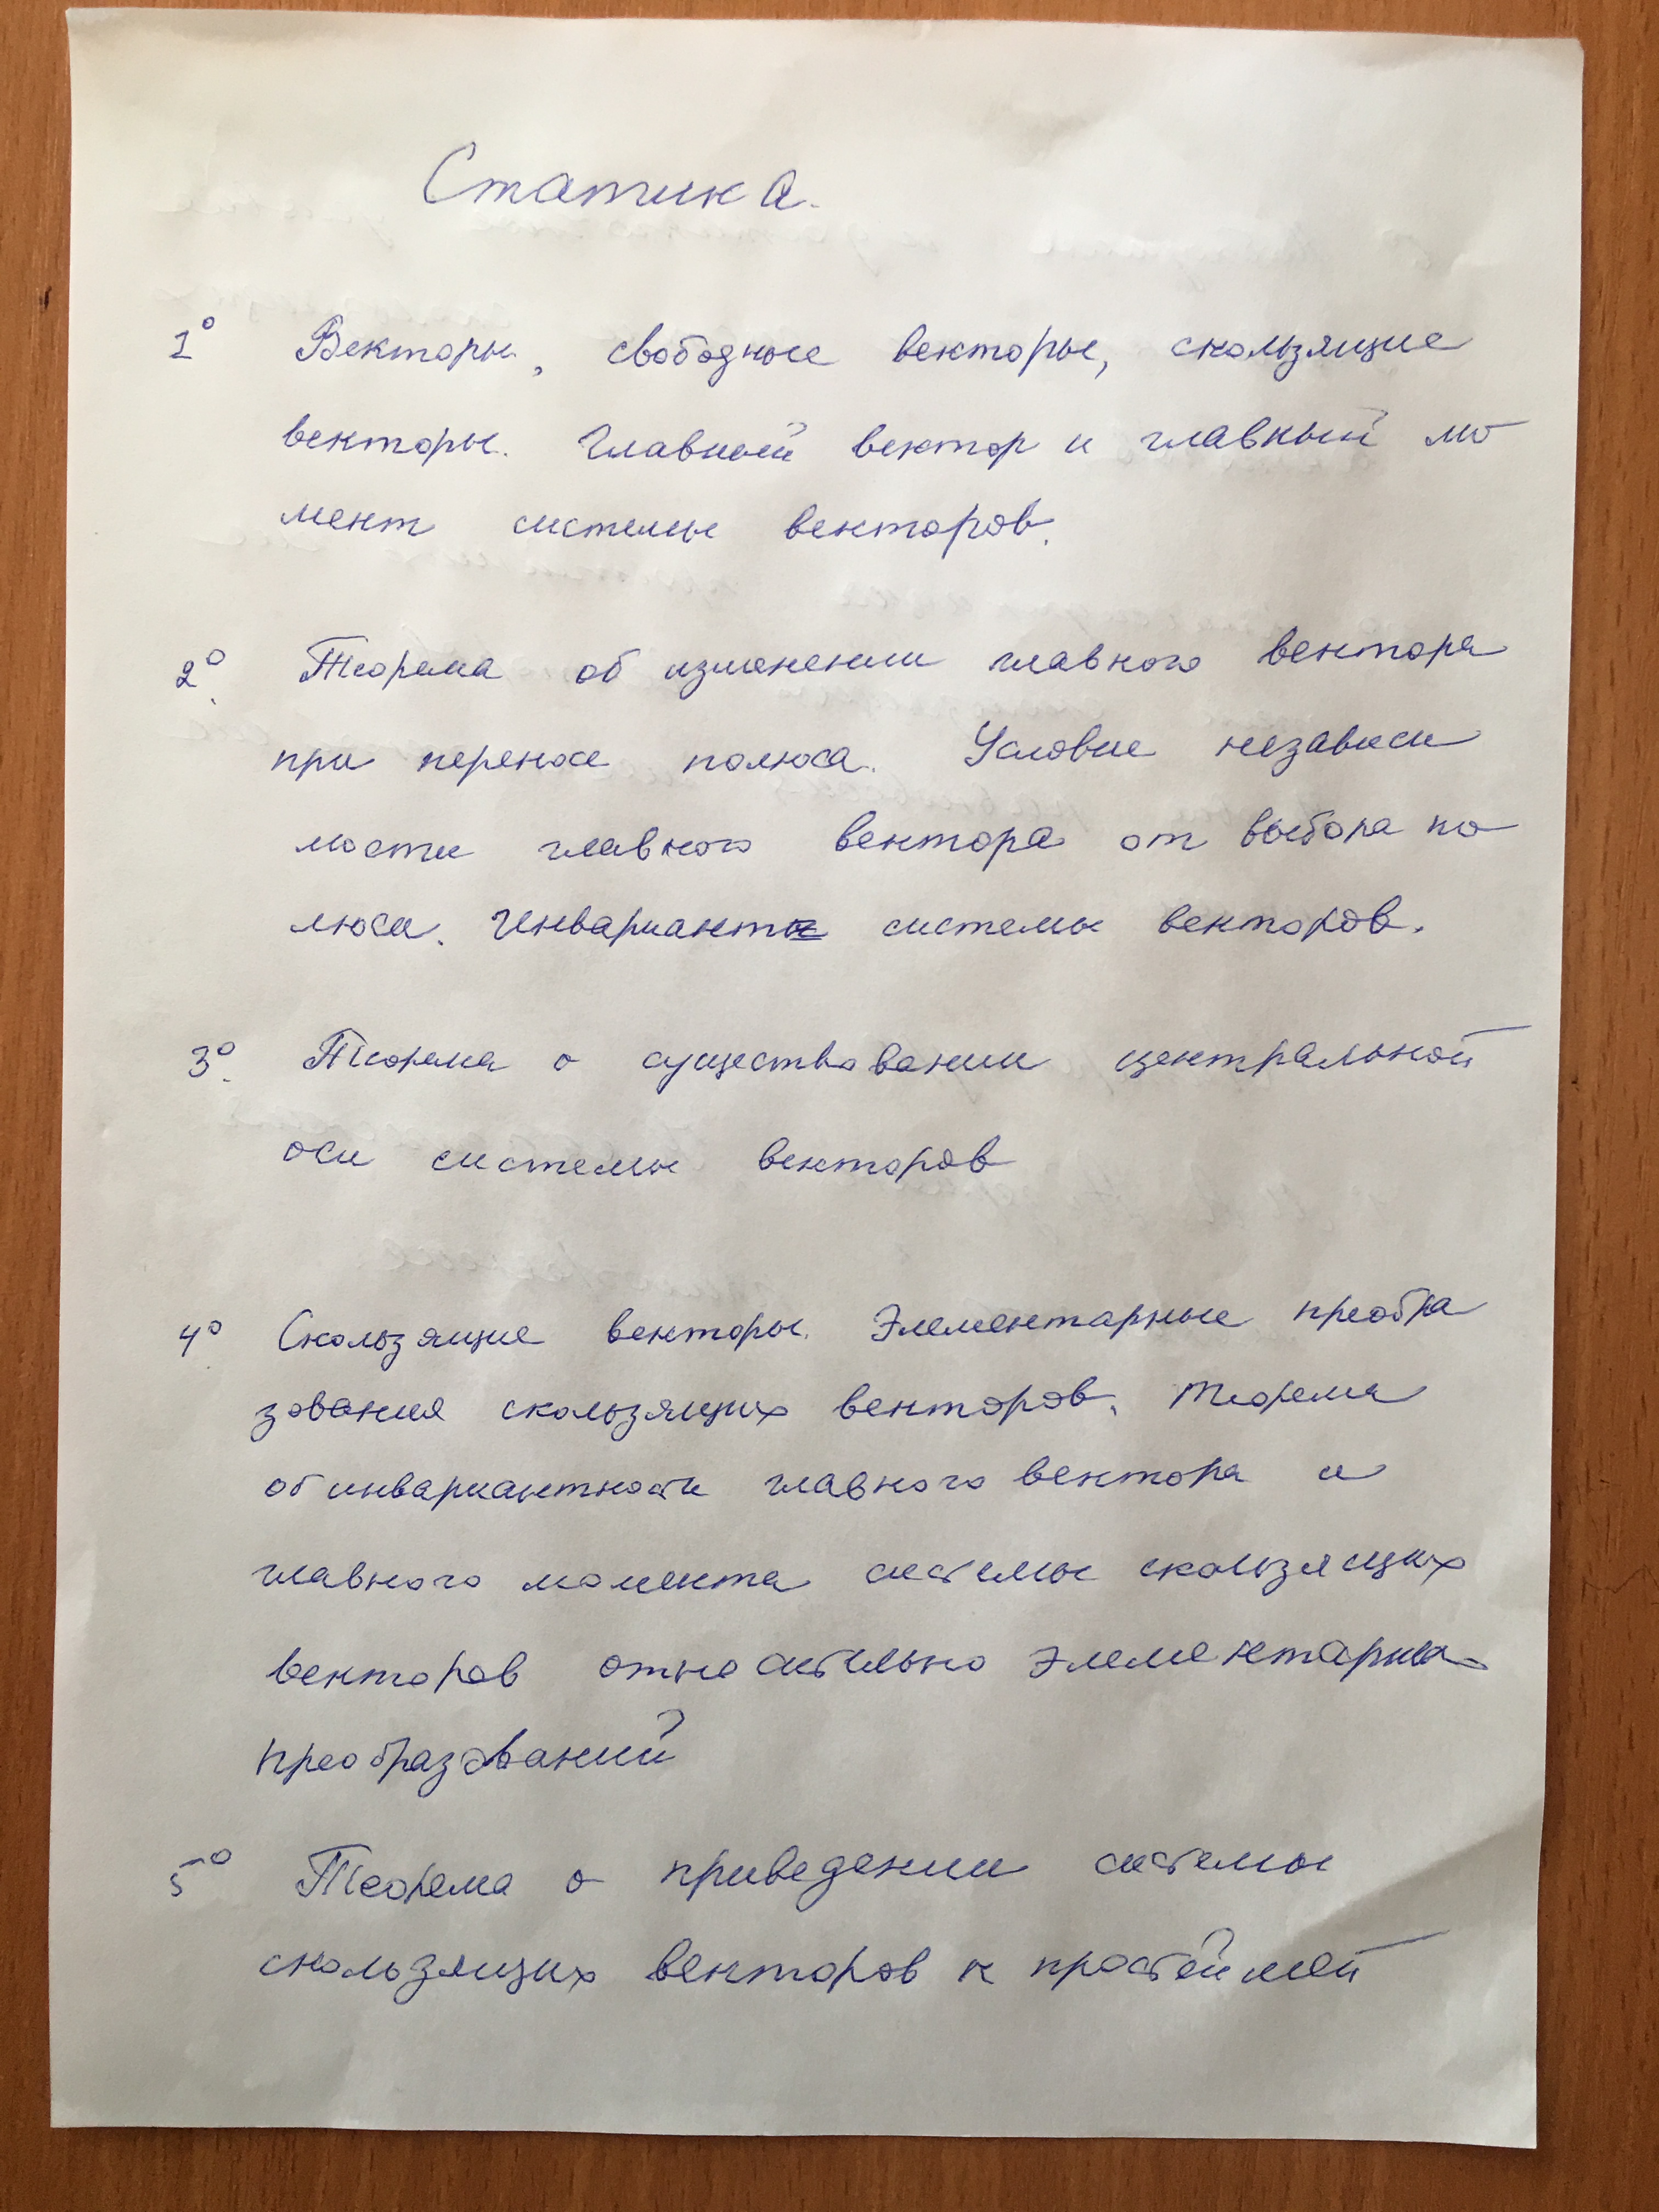 Статика.
1° Векторы, свободные векторы, скользящие
векторы. Главный вектор и главный мо
мент системы векторов.
2°. Теорема об изменении главного вектора
при переносе полюса. Условие независи
мости главного вектора от выбора по
люса. Инварианты системы векторов.
3°. Теорема о существовании центральной
оси системы векторов
4° Скользящие векторы. Элементарные преобра
зования скользящих векторов. Теорема
об инвариантности главного вектора и
главного момента системы скользящих
векторов относительно элементарных
преобразований
5° Теорема о приведении системы
скользящих векторов к простейшей